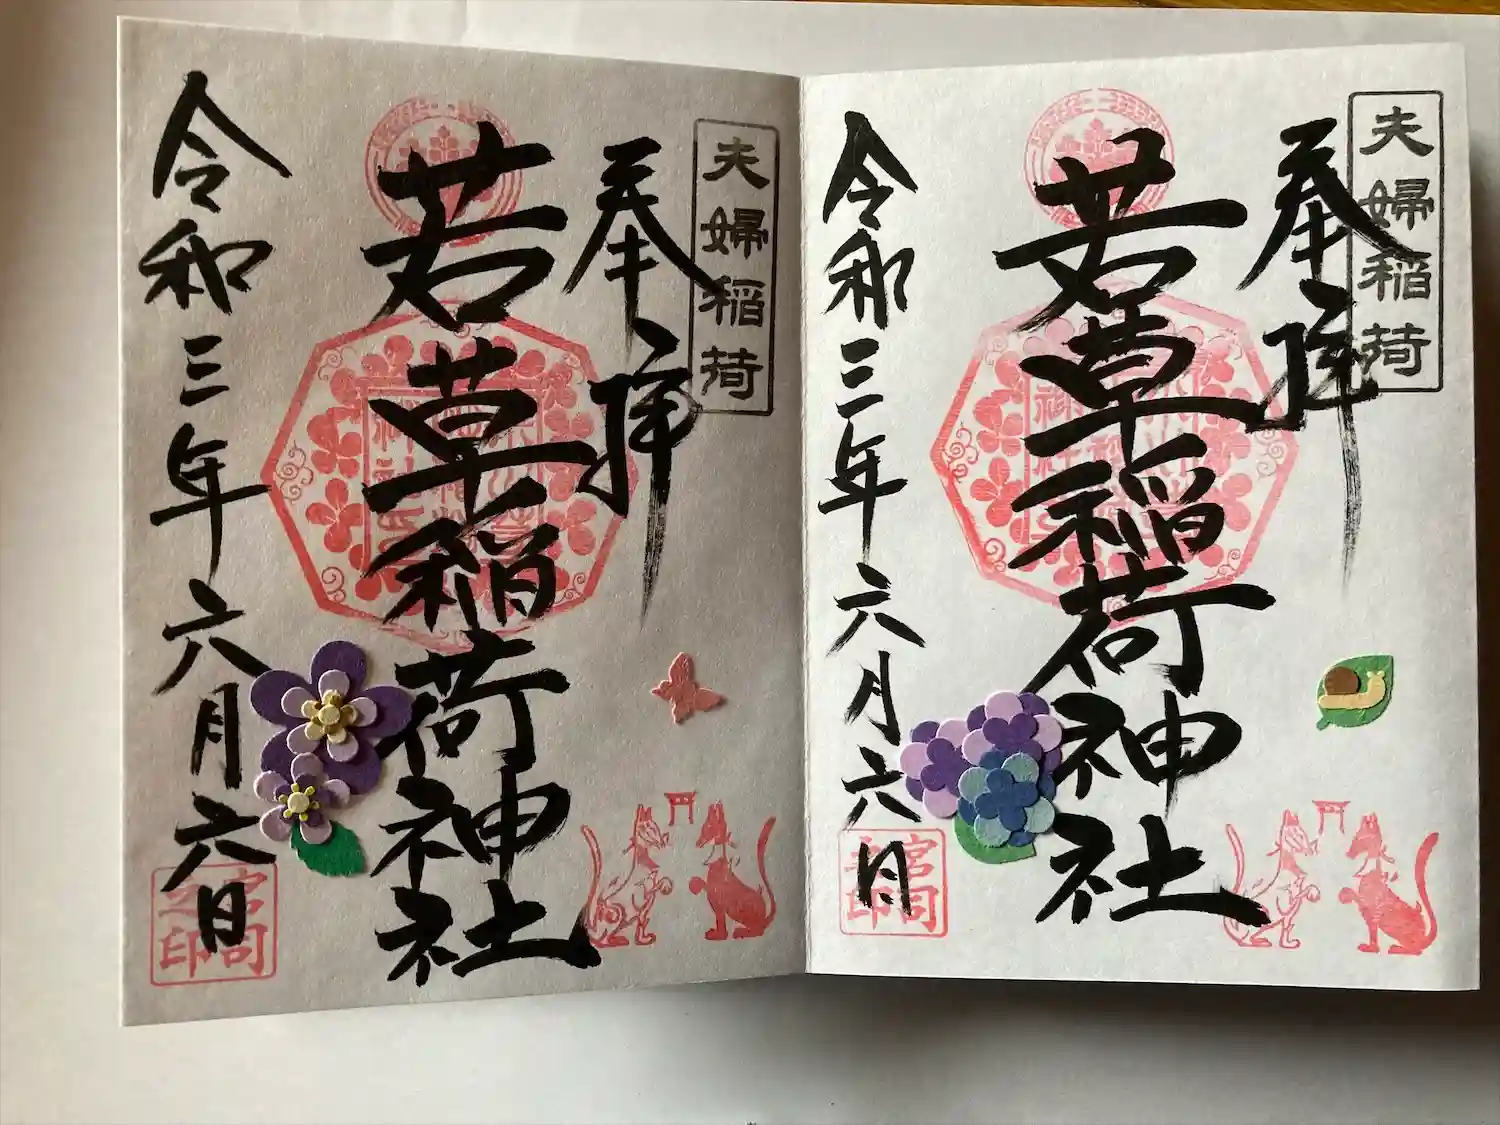 夫婦稲荷
奉拝
若草稲荷神社
令和三年六月六日
宮司之印
夫婦稲荷
奉拝
若草稲荷神社
令和三年六月六日
宮司之印